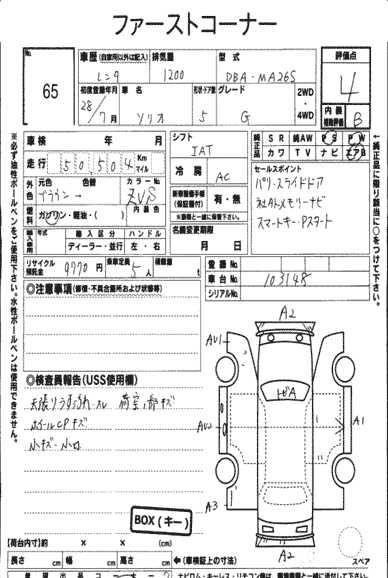 ファーストコーナー
No. 65
車歴(自家用以外は記入) レンタ
排気量 1200
型式 DBA-MA26S
評価点 4
初度登録年月 28/7月
車名 ソリオ
形状・ドア数 5
グレード G
2WD・4WD
内装補助評価 B
車検 年 月
シフト IAT
純正品 SR 純AW PS PW
カワ TV ナビ エアB
走行 50504 Km マイル
冷房 AC
セールスポイント
パワースライドドア
社外メモリーナビ
スマートキー・Pスタート
外色 元色 ブラウン 色替
カラーNo. ZVS
内装色
新車整備手帳(保証書付) 有・無
※書類と一緒に保管下さい。
燃料 ガソリン・軽油・( )
名義変更期限 月 日
輸入車 年式 輸入区分 ハンドル
ディーラー・並行 左・右
リサイクル預託金 9770円
乗車定員 5人
積載量 t
登録No.
車台No. 103148
シリアルNo.
◎注意事項(修復・不具合箇所および状態等)
◎検査員報告(USS使用欄)
天張りうすよごれ・スレ 荷室内部キズ
ホイールCPキズ
小キズ・小凹
A2
AU1
トビA
A1
AW
A3
A2
スペア
BOX(キー)
【荷台内寸】約 x x (cm)
長さ cm 幅 cm 高さ cm ←(車検証上の寸法)
※必ず油性ボールペンをご使用下さい。水性ボールペンは使用できません。
←純正品に限り該当に○をつけて下さい。